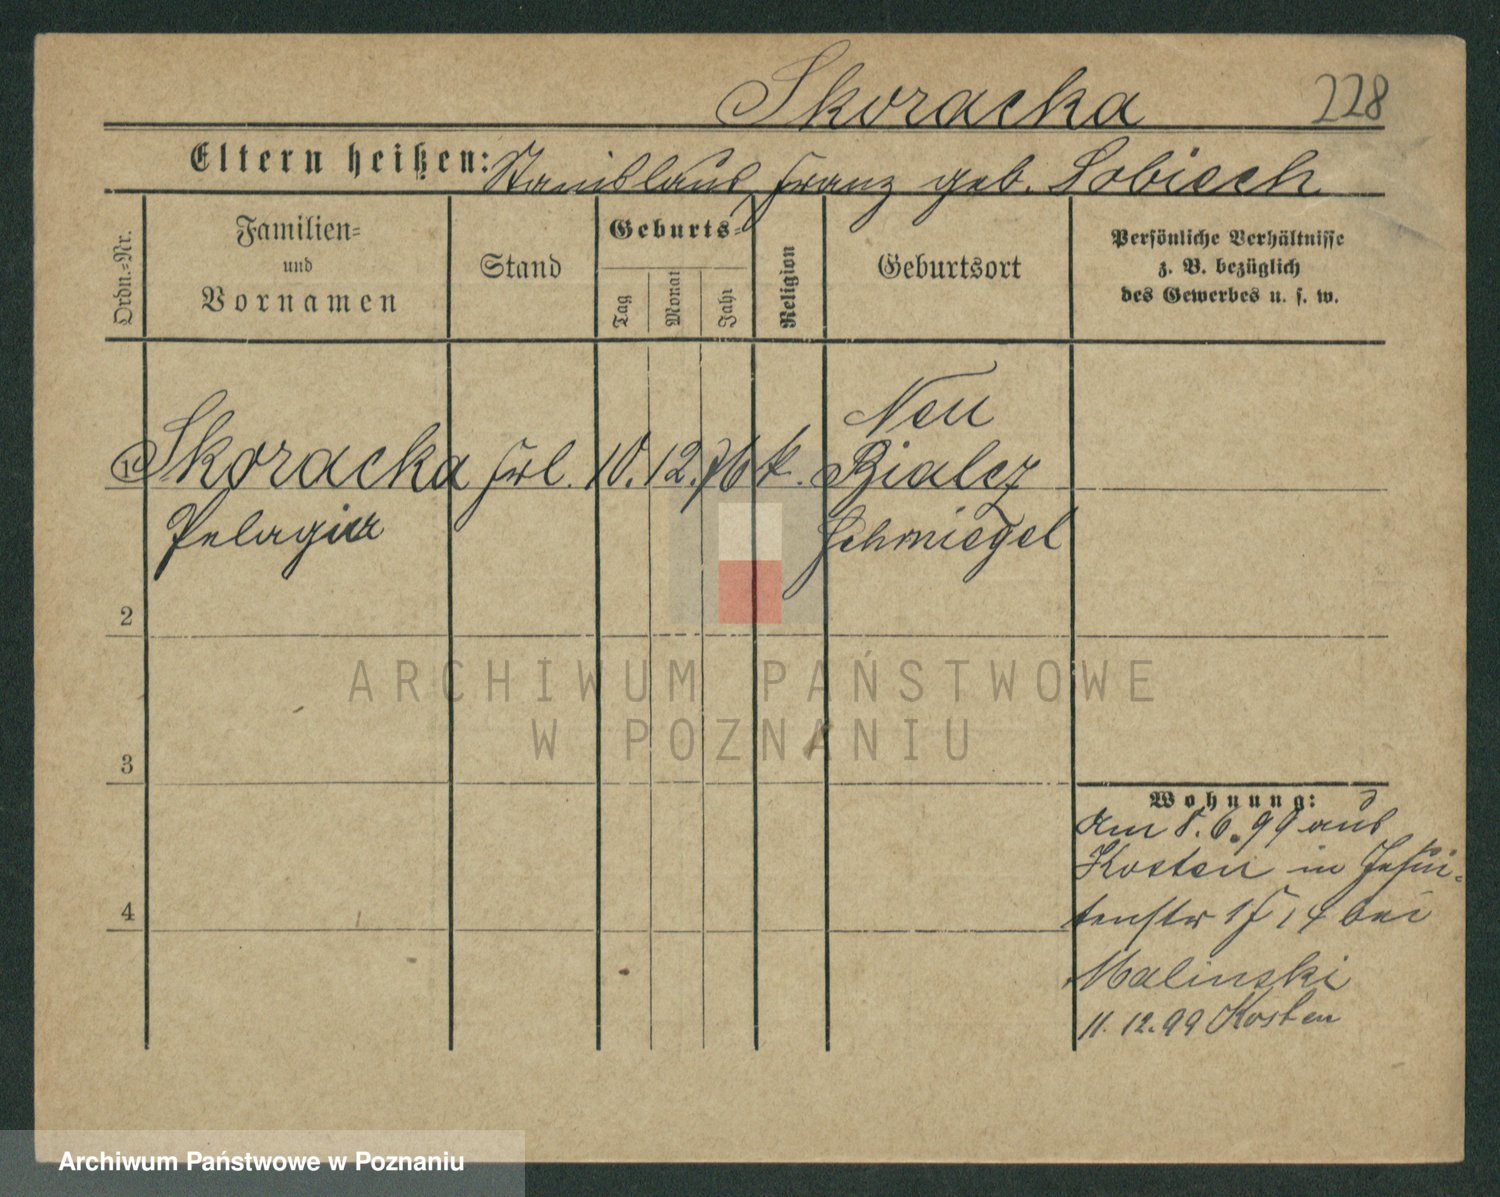 Skoracka 228
Eltern heißen: Stanislaus, Franz geb. Sobiech
Ordn.=Nr.
Familien=
und
Vornamen
Stand
Geburts=
Tag
Monat
Jahr
Religion
Geburtsort
Persönliche Verhältnisse
z. B. bezüglich
des Gewerbes u. s. w.
Neu
1 Skoracka Frl. 10. 12. 76 k. Bialcz
Pelagia Schmiegel
2
ARCHIWUM PAŃSTWOWE
W POZNANIU
3
Wohnung:
am 8. 6. 99 aus
Kosten in Jesui-
4
tenstr bei
Malinski
11. 12. 99 Kosten
Archiwum Państwowe w Poznaniu